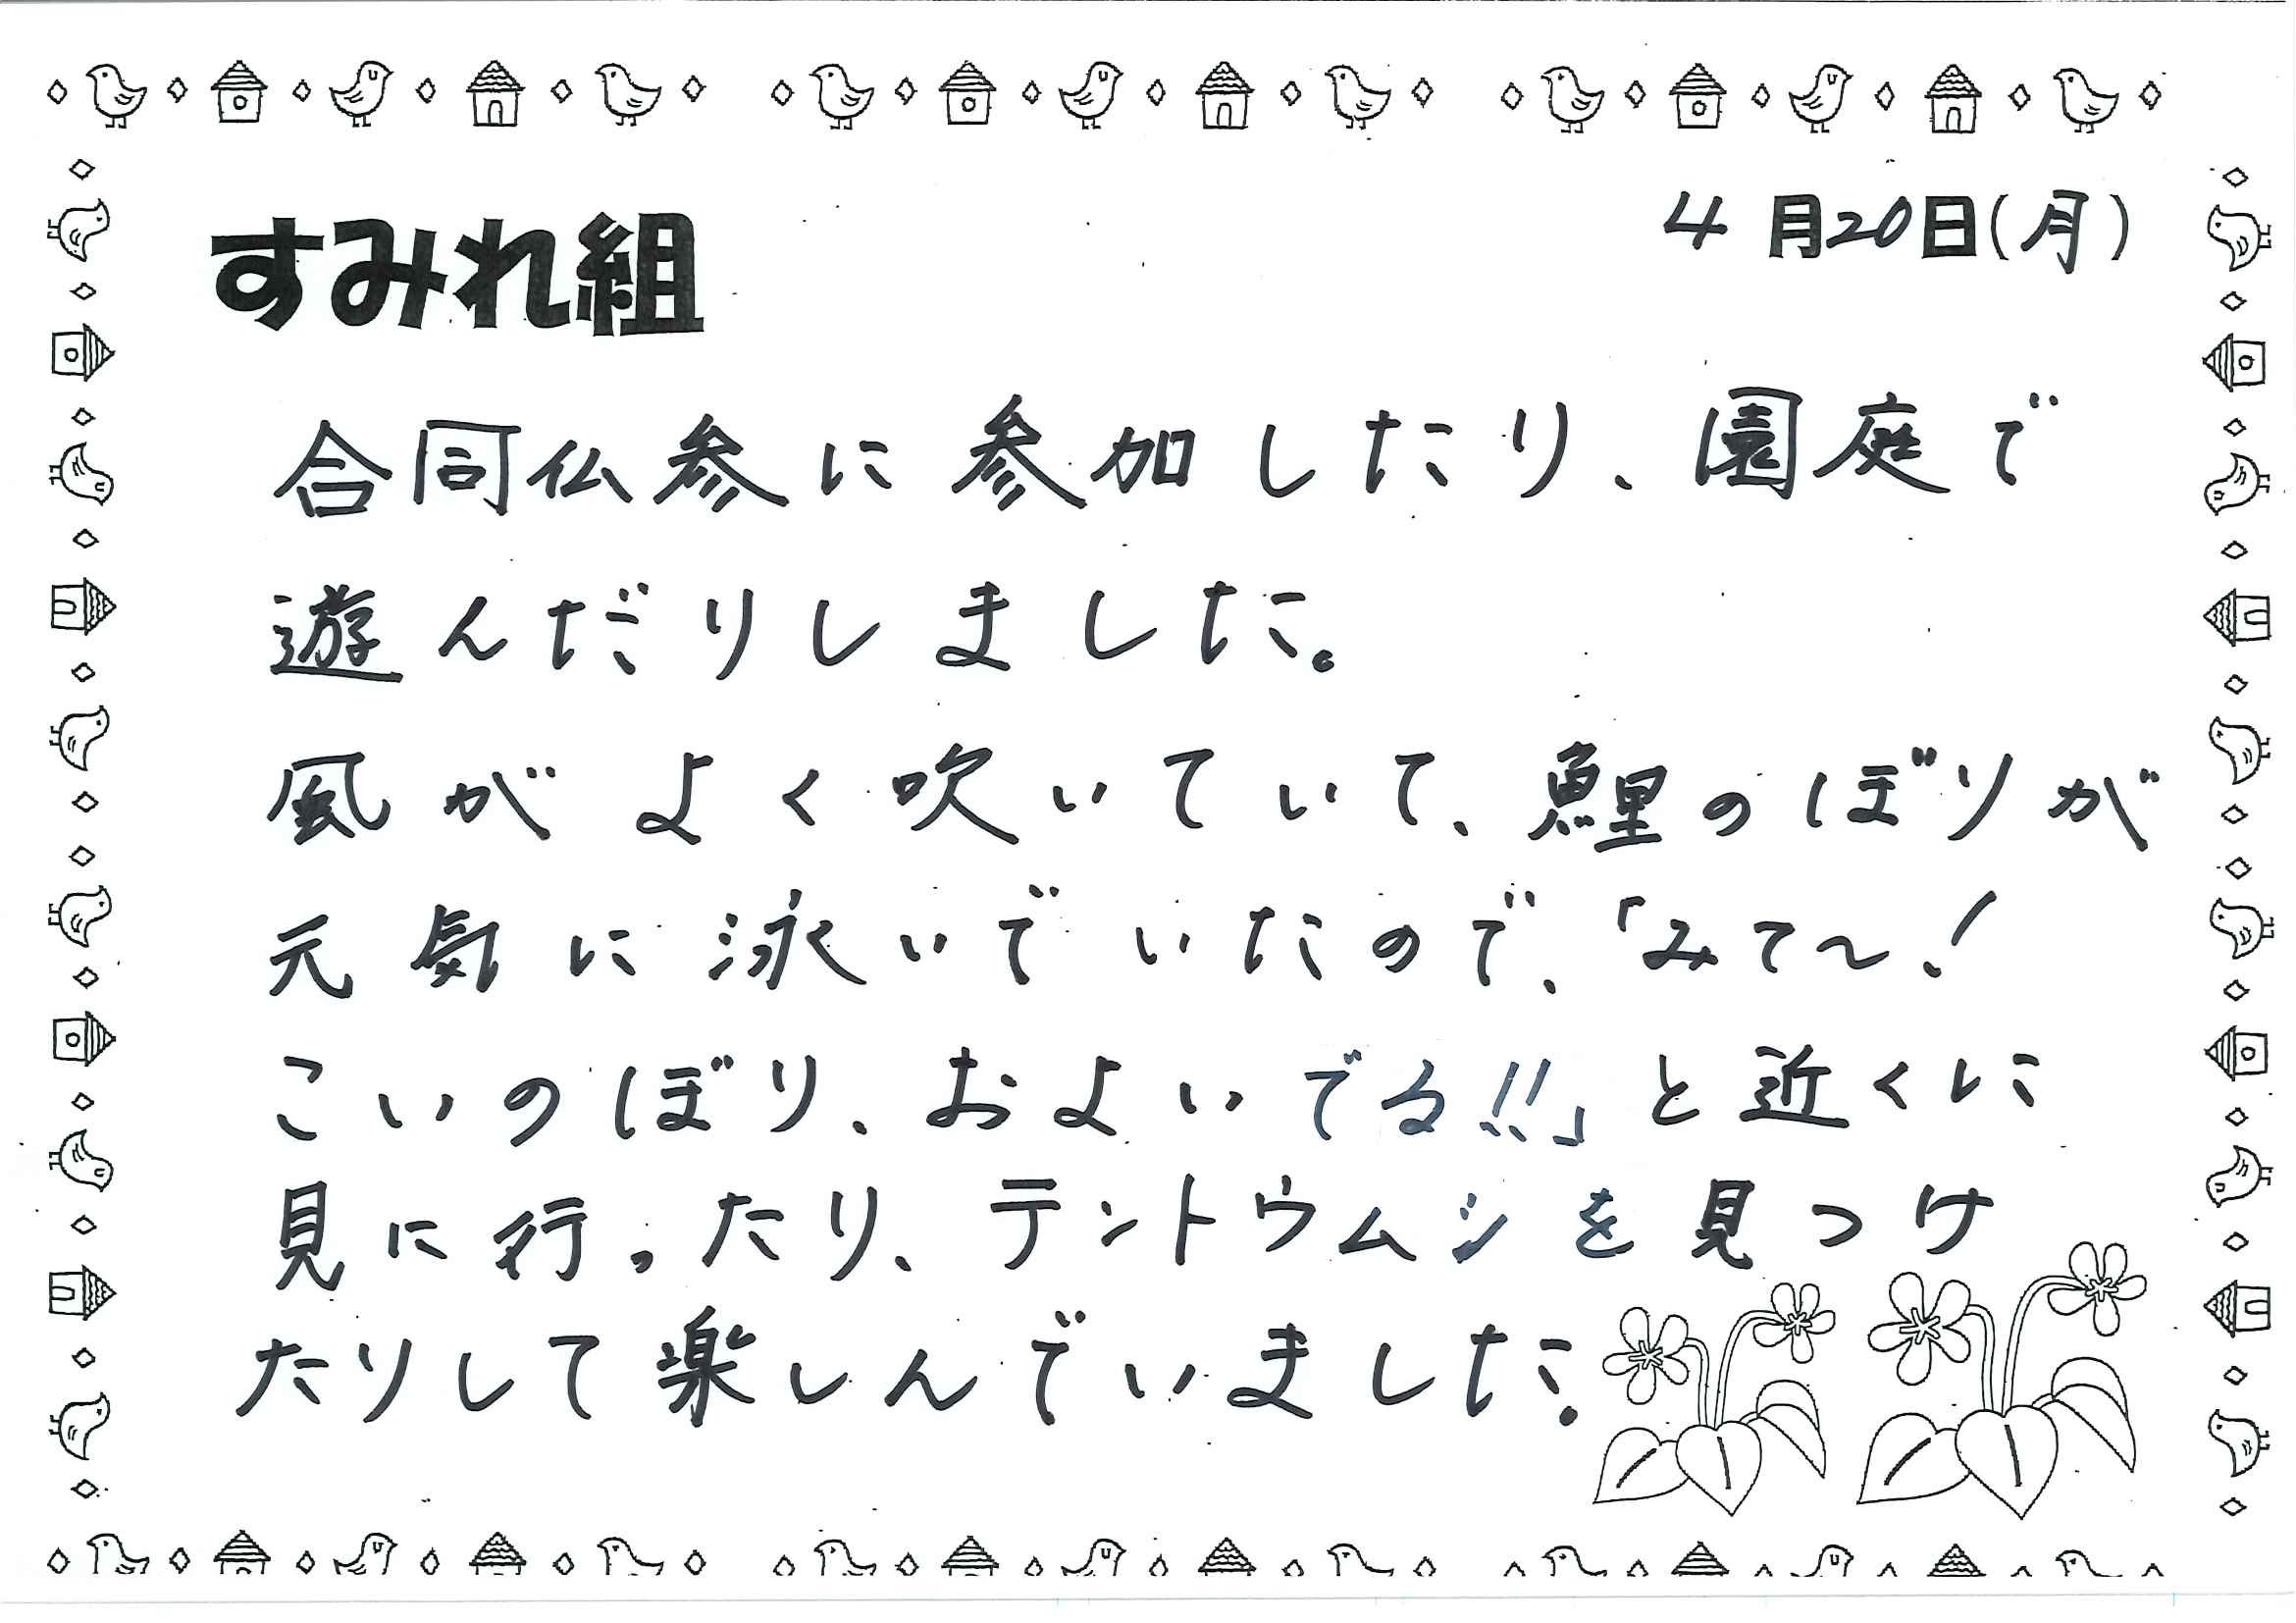 4月20日(月)
すみれ組
合同仏参に参加したり、園庭で
遊んだりしました。
風がよく吹いていて、鯉のぼりが
元気に泳いでいたので、「みて〜!
こいのぼり、およいでる!!」と近くに
見に行ったり、テントウムシを見つけ
たりして楽しんでいました。